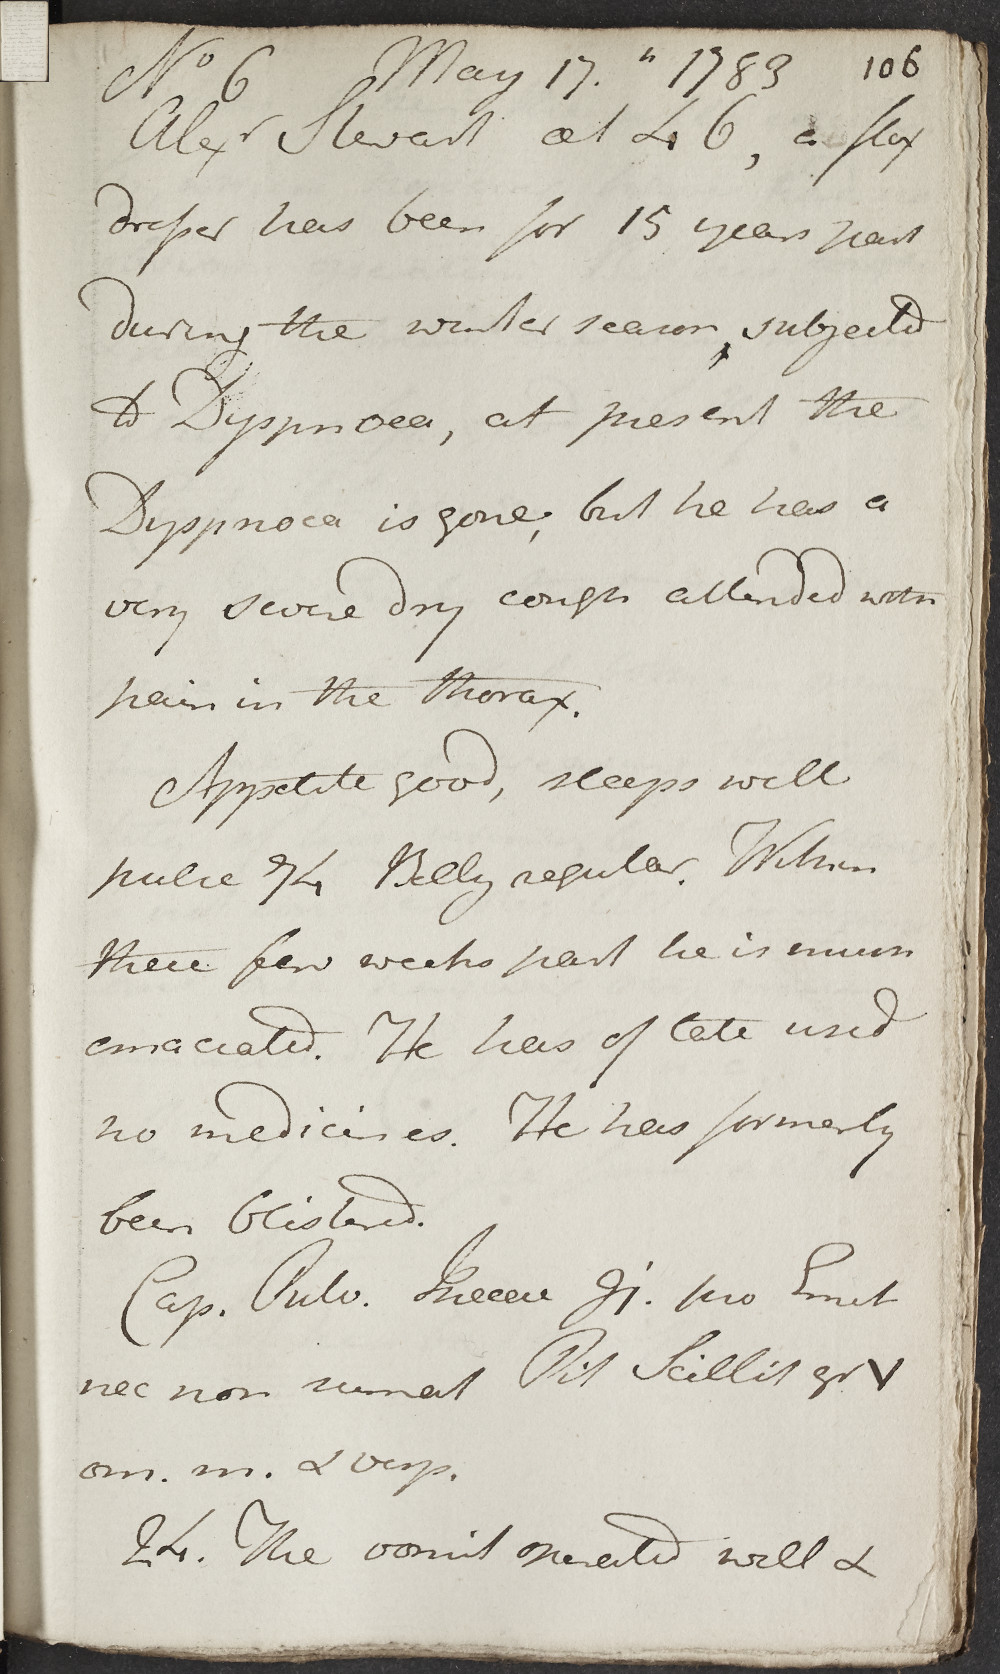 No 6 May 17.th 1783 106
Alexr Stewart æt 46, a flax
dresser has been for 15 years past
during the winter season, subjected
to Dyspnoea, at present the
Dyspnoea is gone, but he has a
very severe dry cough attended with
pain in the thorax.
Appetite good, sleeps well
pulse 74 Belly regular. Within
these few weeks past he is much
emaciated. He has of late used
no medicines. He has formerly
been blistered.
Cap. Pulv. Ipecac ʒj. pro Emet
nec non sumat Pil Scillit gr V
om. m. & vesp.
24. The vomit operated well &